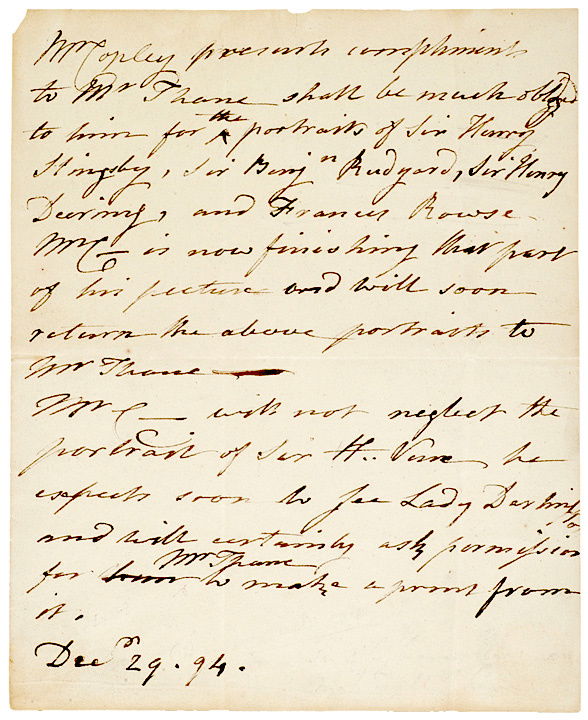 Mr Copley presents compliments
to Mr Thane shall be much obliged
to him for the portraits of Sir Harry
Slingsby, Sir Benjn Rudyard, Sir Henry
Deering, and Francis Rowse
Mr C— is now finishing that part
of his picture and will soon
return the above portraits to
Mr Thane —
Mr C— will not neglect the
portrait of Sir H.. Vane he
expects soon to see Lady Darling
and will certainly ask permission
for Mr Thane to make a print from
it.
Decr 29. 94.